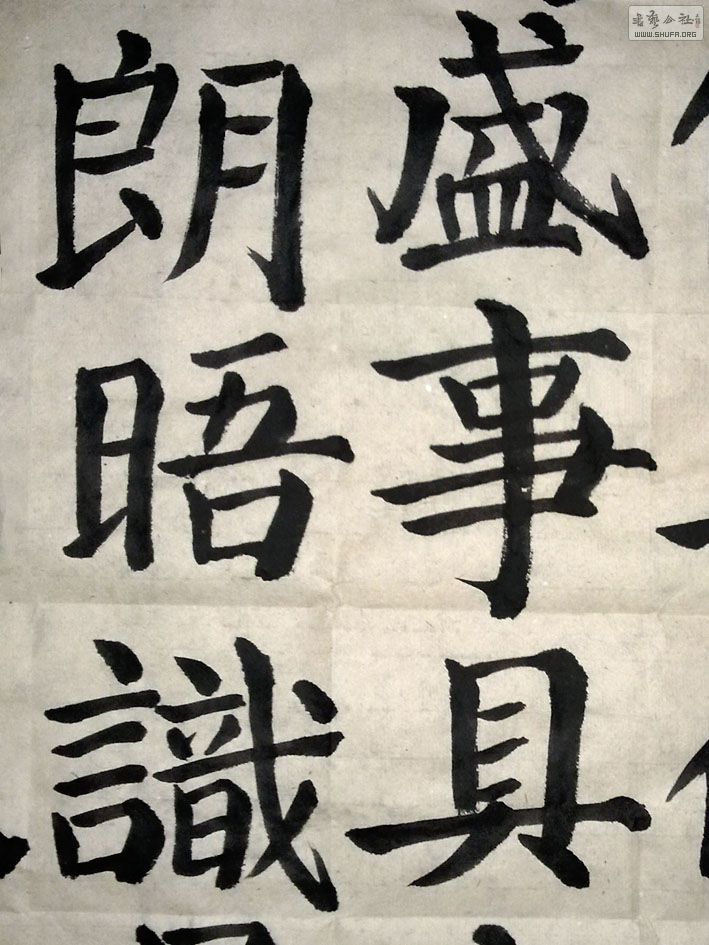 盛事具
朗晤識
書藝公社
WWW.SHUFA.ORG